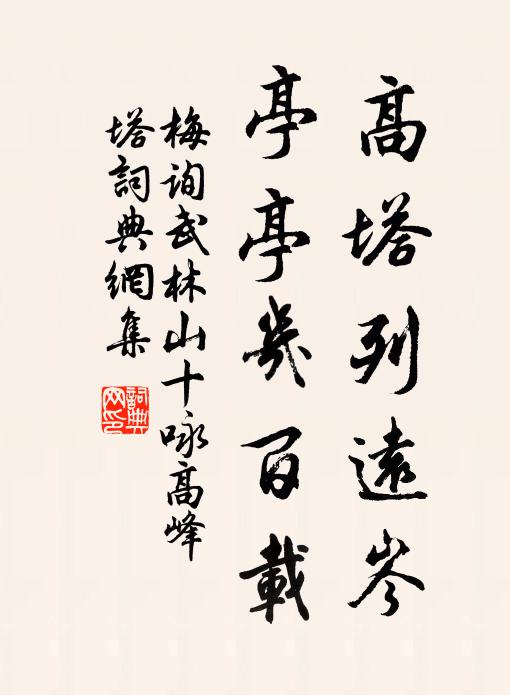 高塔列遠岑
亭亭幾百載
梅询武林山十咏高峰
塔詞典網集
詞典网印